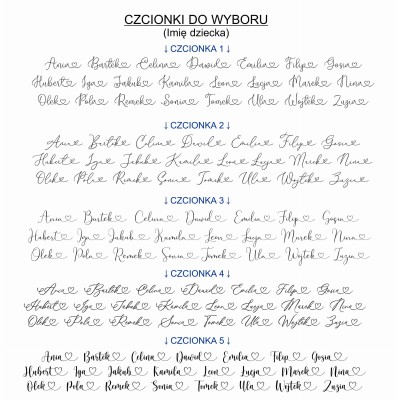 CZCIONKI DO WYBORU
(Imię dziecka)
↓ CZCIONKA 1 ↓
Ania Bartek Celina Dawid Emilia Filip Gosia
Hubert Iga Jakub Kamila Leon Lucja Marek Nina
Olek Pola Romek Sonia Tomek Ula Wojtek Zuzia
↓ CZCIONKA 2 ↓
Ania Bartek Celina Dawid Emilia Filip Gosia
Hubert Iga Jakub Kamila Leon Lucja Marek Nina
Olek Pola Romek Sonia Tomek Ula Wojtek Zuzia
↓ CZCIONKA 3 ↓
Ania Bartek Celina Dawid Emilia Filip Gosia
Hubert Iga Jakub Kamila Leon Lucja Marek Nina
Olek Pola Romek Sonia Tomek Ula Wojtek Zuzia
↓ CZCIONKA 4 ↓
Ania Bartek Celina Dawid Emilia Filip Gosia
Hubert Iga Jakub Kamila Leon Lucja Marek Nina
Olek Pola Romek Sonia Tomek Ula Wojtek Zuzia
↓ CZCIONKA 5 ↓
Ania Bartek Celina Dawid Emilia Filip Gosia
Hubert Iga Jakub Kamila Leon Lucja Marek Nina
Olek Pola Romek Sonia Tomek Ula Wojtek Zuzia